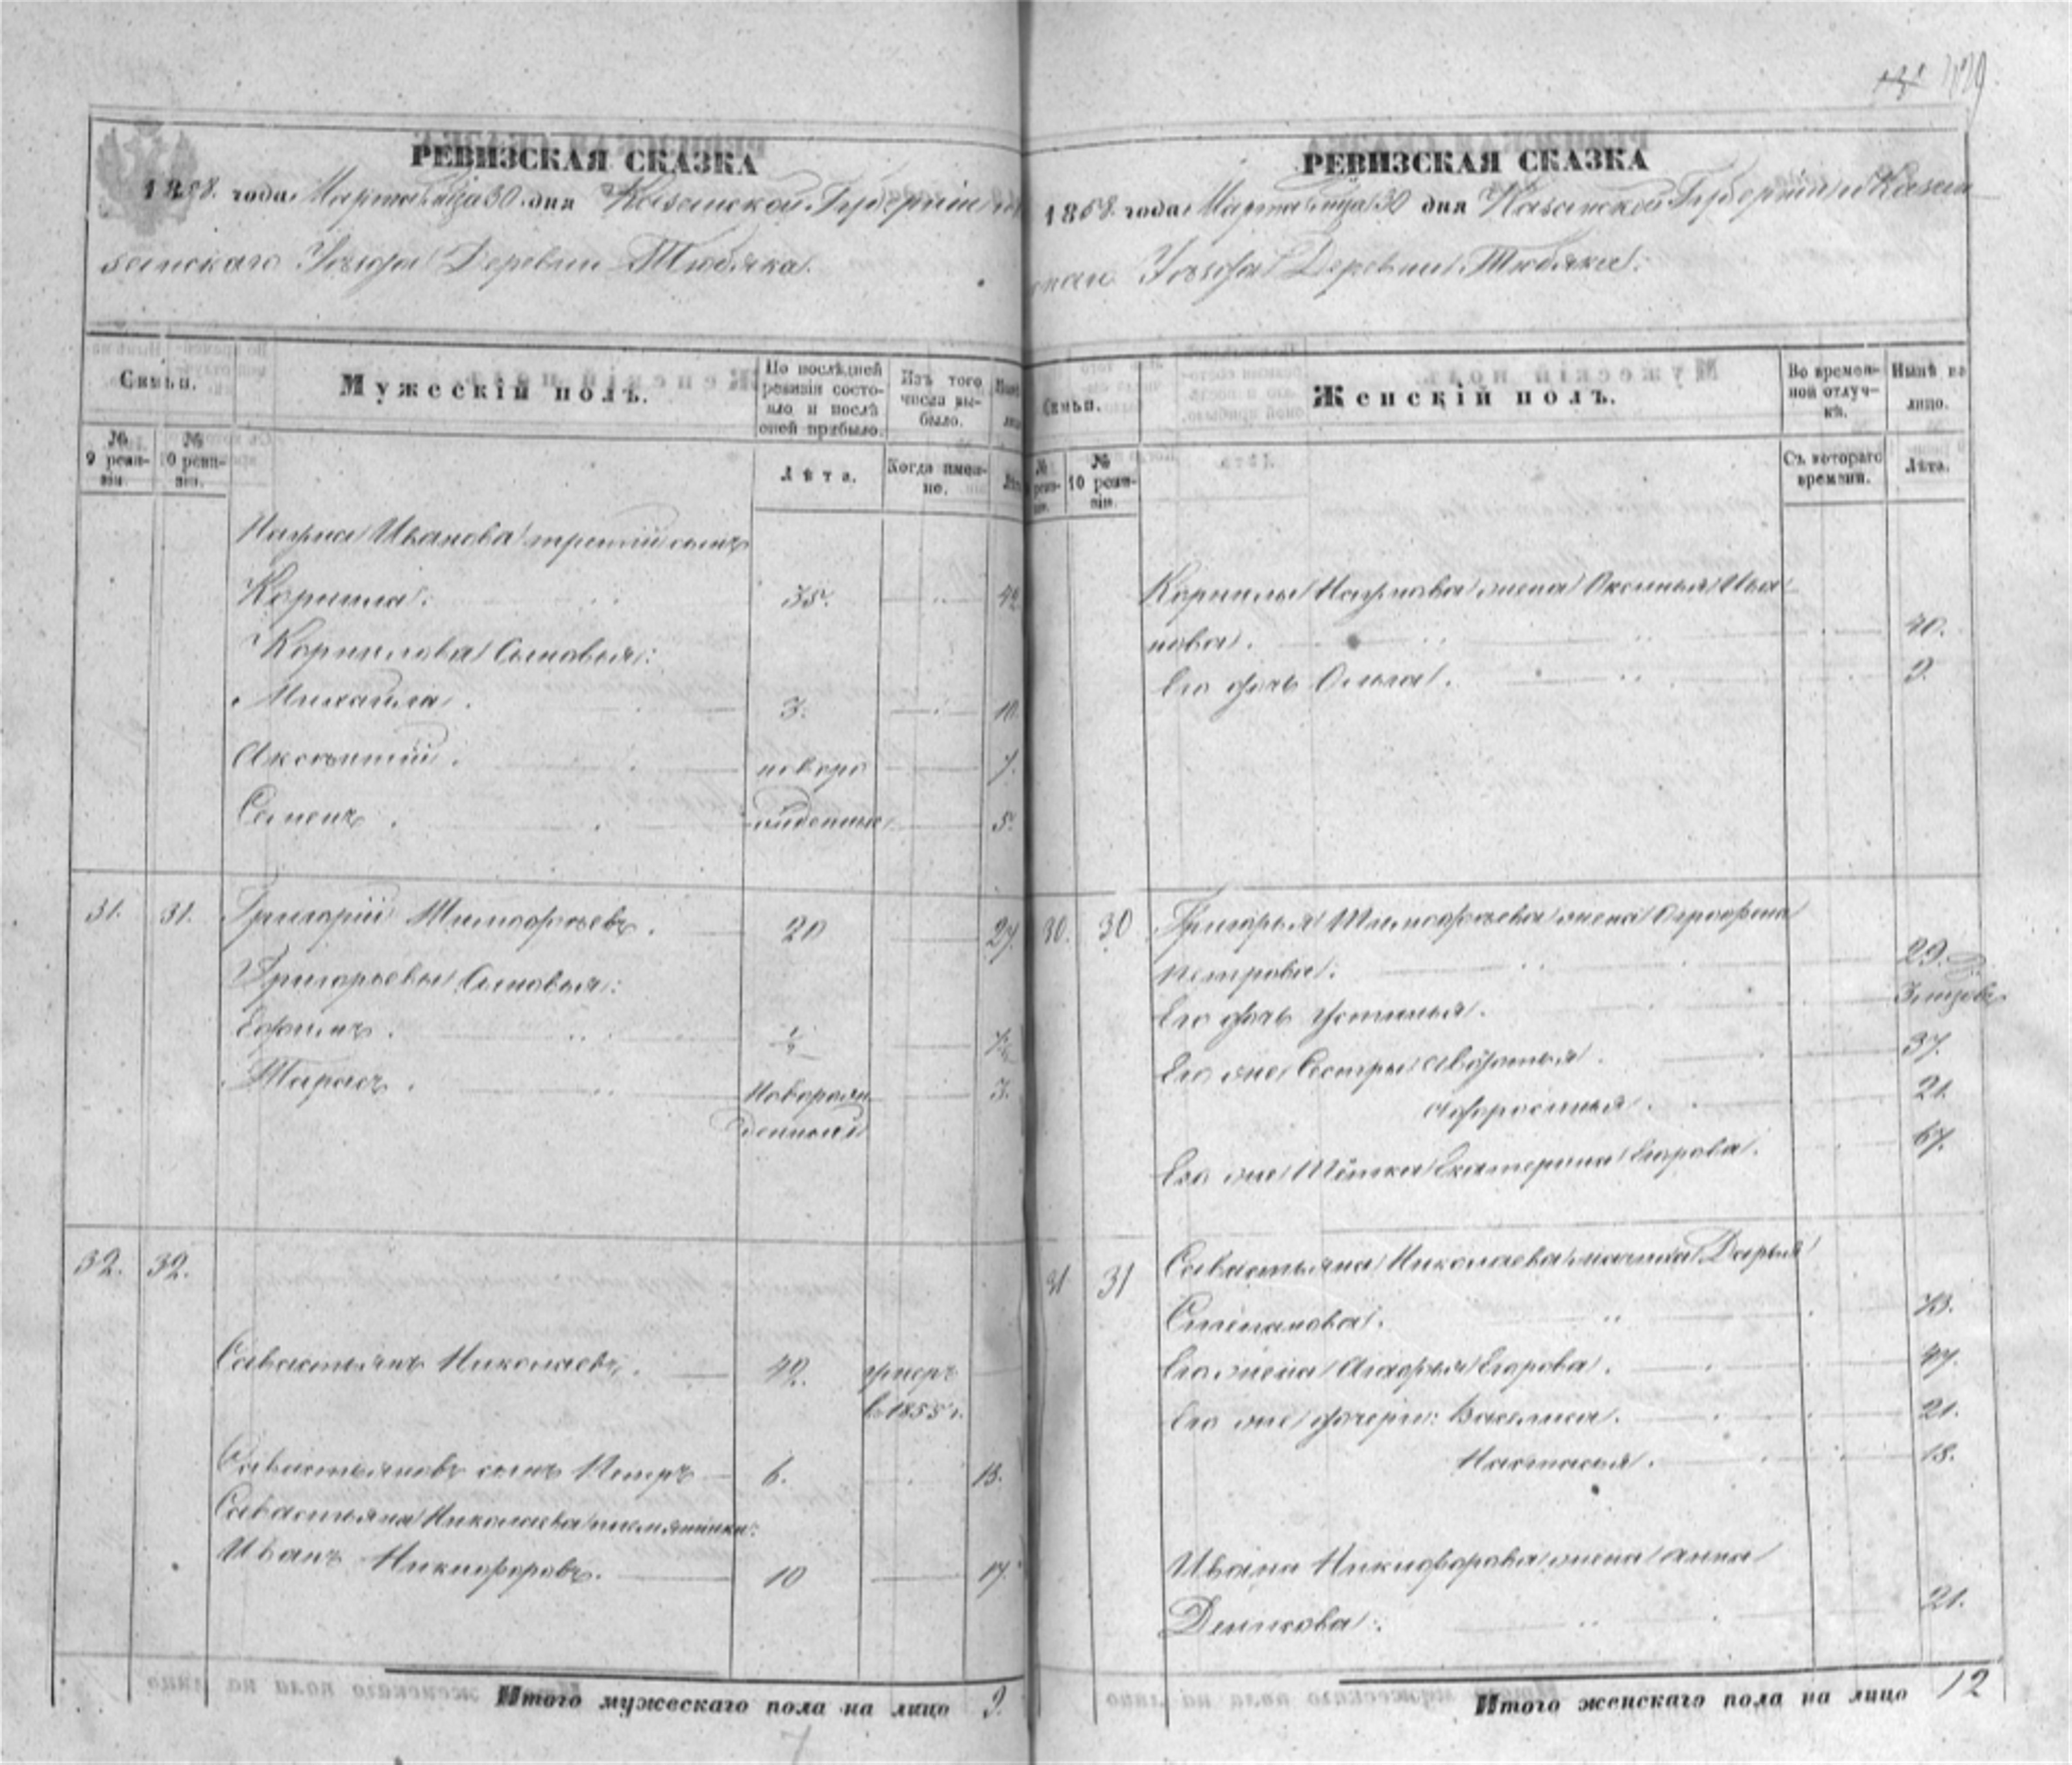 РЕВИЗСКАЯ СКАЗКА
1858. года Марта м̃ца 30 дня Казанской Губерніи и Ка
занскаго Уѣзда Деревни Тюбяка.
Семьи.
Мужескій полъ.
По послѣдней ревизіи состояло и послѣ оной прибыло.
Изъ того числа выбыло.
№ 9 ревизіи.
№ 10 ревизіи.
Лѣта.
Когда именно.
Наума Иванова третій сынъ
Корнила. 35. 42
Корнилова Сыновья:
Михайла. 3. 10.
новоро 7.
Семенъ. жденные 5.
31. 31. Григорій Тимофѣевъ. 20 27.
Григорьевы Сыновья:
Ефимъ. ½ 7½
Тарасъ. Новорож 3.
денный
32. 32.
Савастьянъ Николаевъ. 42. умеръ
въ 1855 г.
Савастьяновъ сынъ Петръ 6. 13.
Савастьяна Николаева племянники:
Иванъ Никифоровъ. 10 17.
Итого мужескаго пола на лицо 9.
РЕВИЗСКАЯ СКАЗКА
1858. года Марта м̃ца 30 дня Казанской Губерніи и Казан
скаго Уѣзда Деревни Тюбяка.
Семьи.
Женскій полъ.
Во временной отлучкѣ.
Нынѣ на лицо.
№ 10 ревизіи.
Съ котораго времени.
Лѣта.
Корнилы Наумова жена Аксинья Ива
нова. 40.
Его дочь Ольга. 9.
30. 30 Григорья Тимофѣева жена Аграфена
Петрова. 29.
Его дочь Устинья.
Его же Сестры Авдотья. 37.
Афросинья. 21.
Его же Тётка Екатерина Егорова. 67.
31 31 Савастьяна Николаева мачиха Дарья
Степанова. 73.
Его жена Агафья Егорова. 47.
Его же дочери: Василиса. 21.
Настасья. 18.
Ивана Никифорова жена Анна
Денисова. 21.
Итого женскаго пола на лицо 12